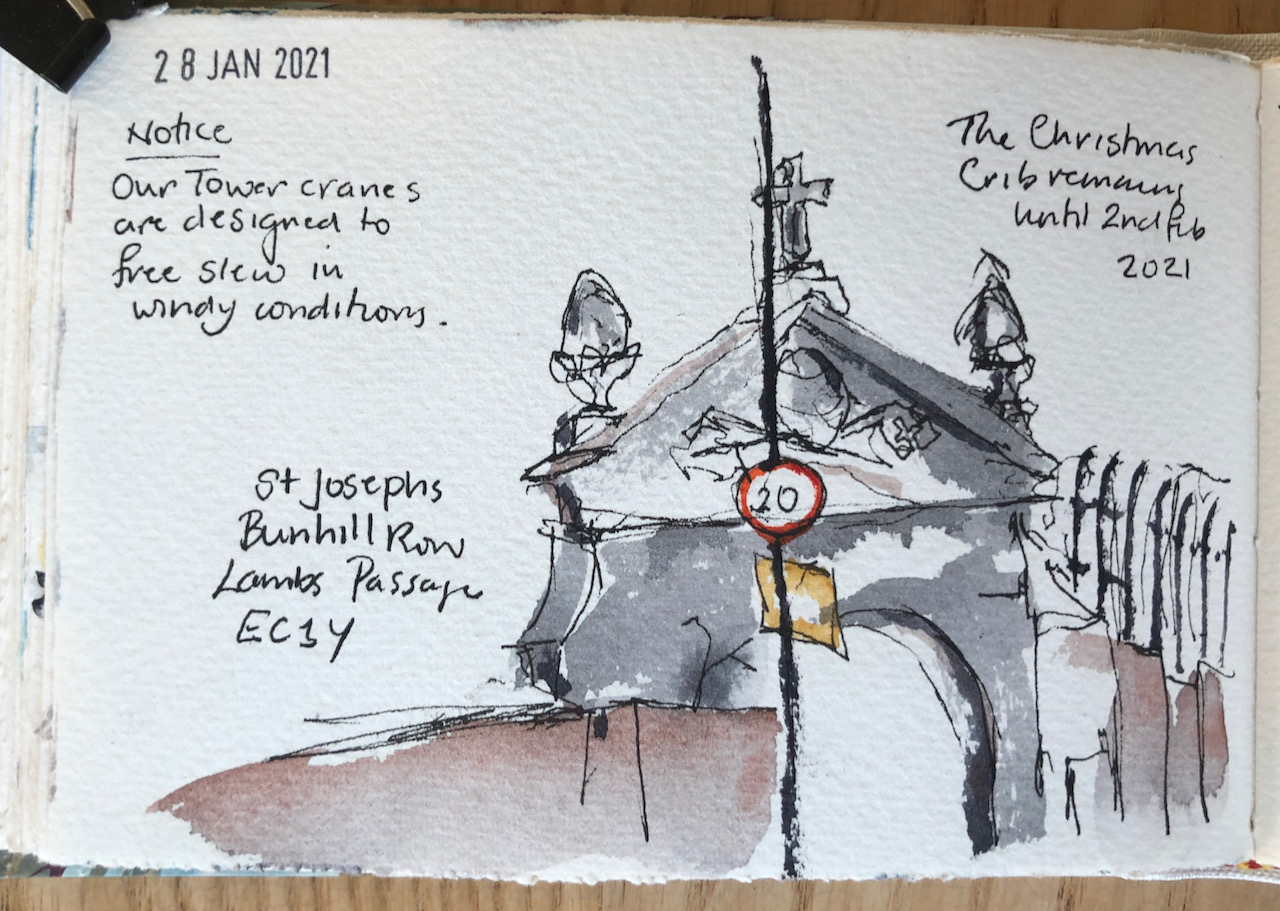 28 JAN 2021
Notice
Our Tower cranes
are designed to
free slew in
windy conditions.
The Christmas
Crib remains
until 2nd Feb
2021
St Josephs
Bunhill Row
Lambs Passage
EC1Y
20